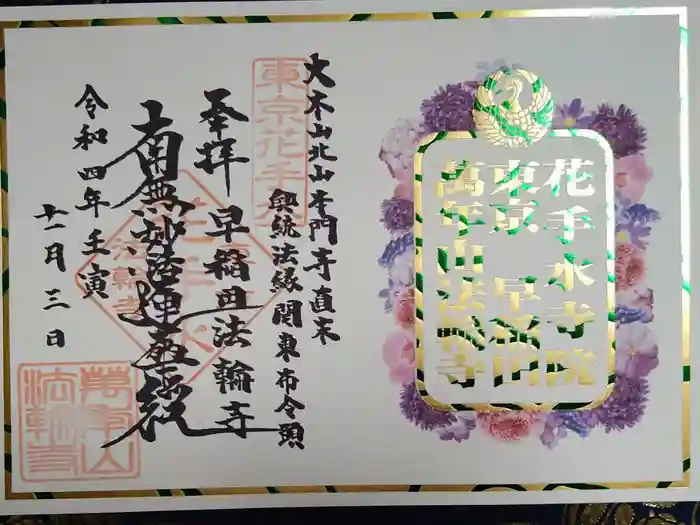 花手水寺院
東京 早稲田
萬年山法輪寺
東京花手水
大本山北山本門寺直末
興統法縁関東布令頭
奉拝 早稲田法輪寺
南無妙法蓮華経
令和四年壬寅
十一月三日
萬年山
法輪寺